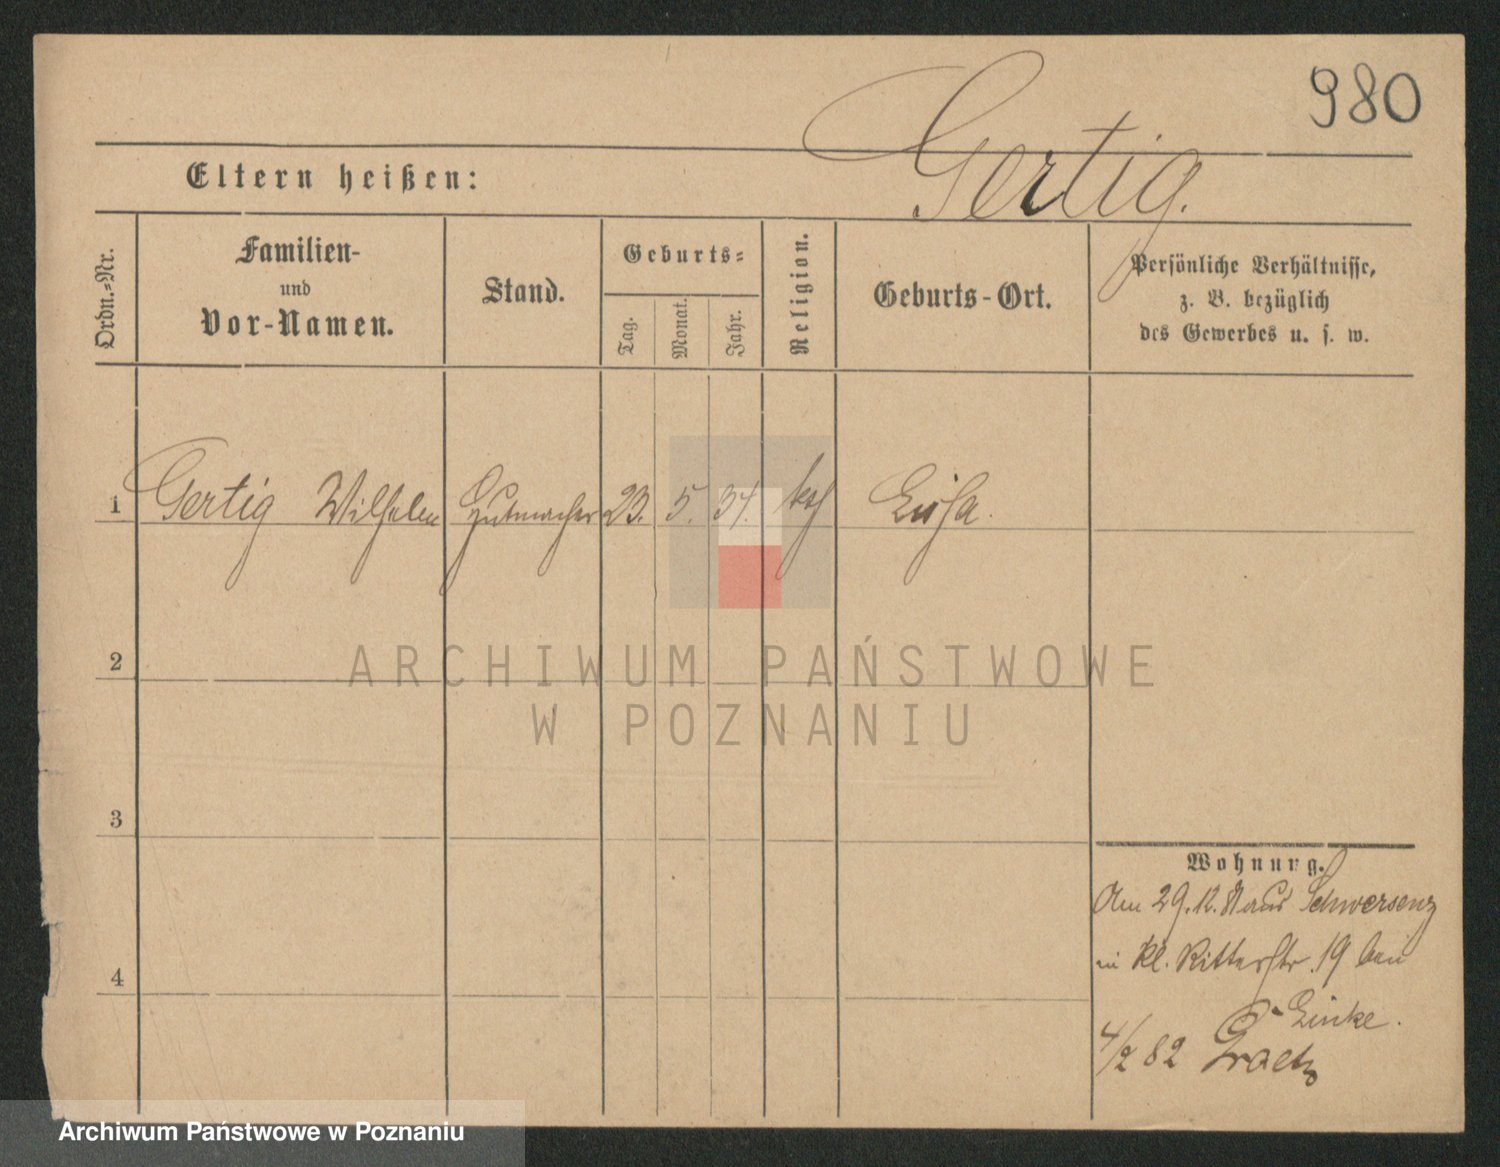 980
Gertig.
Eltern heißen:
Ordn.=Nr.
Familien-
und
Vor-Namen.
Stand.
Geburts=
Tag.
Monat.
Jahr.
Religion.
Geburts-Ort.
Persönliche Verhältnisse,
z. B. bezüglich
des Gewerbes u. s. w.
1 Gertig Wilhelm Hutmacher 23. 5. kath Lissa.
2
3
4
Wohnung.
Am 29. 12. 81 aus Schwersenz
in Kl. Ritterstr. 19 bei
Linke.
4/2 82 Graetz
ARCHIWUM PAŃSTWOWE
W POZNANIU
Archiwum Państwowe w Poznaniu